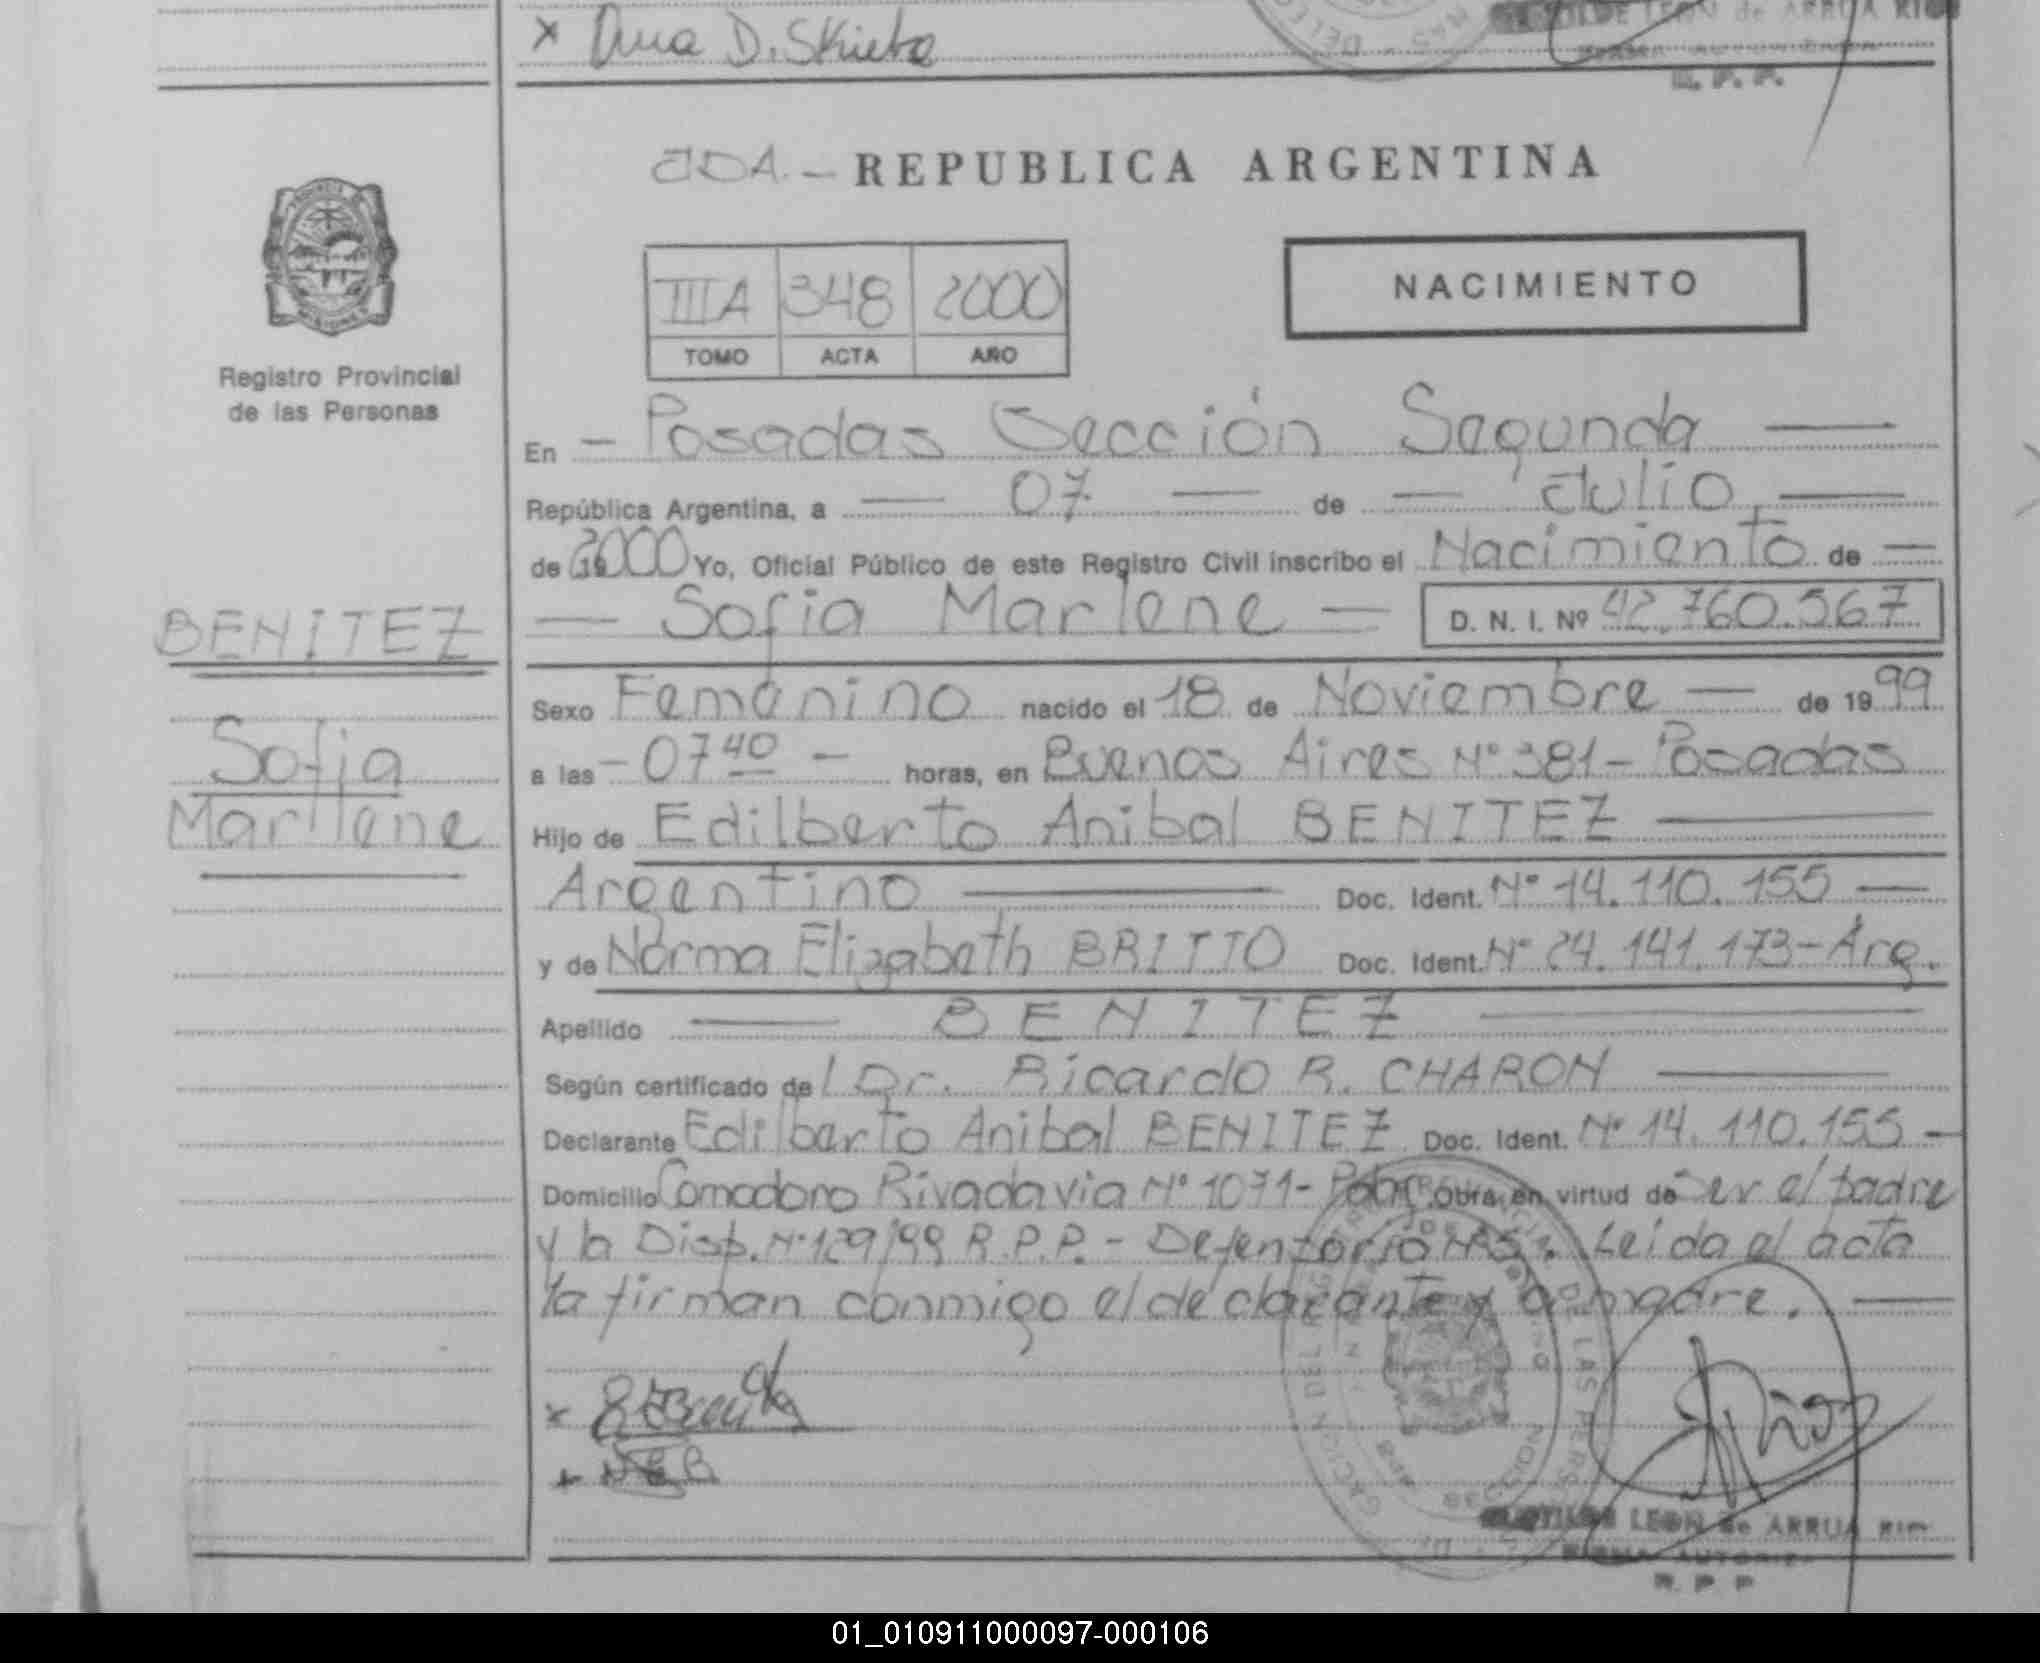 x Ana D. Skieba
LEON de ARRUA RIOS
R. P. P.
JDA. - REPUBLICA ARGENTINA
PROVINCIA DE
MISIONES
III A 348 2000
TOMO ACTA AÑO
NACIMIENTO
Registro Provincial
de las Personas
En - Posadas Sección Segunda —
República Argentina, a — 07 — de — Julio —
de 2000 Yo, Oficial Público de este Registro Civil inscribo el Nacimiento de —
BENITEZ
— Sofia Marlene — D. N. I. Nº 42.760.567
Sexo Femenino nacido el 18 de Noviembre — de 1999
Sofia
a las - 07 40 - horas, en Buenos Aires Nº 381 - Posadas
Marllene
Hijo de Edilberto Anibal BENITEZ —
Argentino — Doc. Ident. Nº 14.110.155 —
y de Norma Elizabeth BRITTO Doc. Ident. Nº 24.141.173 - Arg.
Apellido — BENITEZ —
Según certificado de l Dr. Ricardo R. CHARON —
Declarante Edilberto Anibal BENITEZ Doc. Ident. Nº 14.110.155 -
Domicilio Comodoro Rivadavia Nº 1071 - Obra en virtud de ser el padre
y la Disp. Nº 129/99 R.P.P. - Defensoria Nº 5. Leida el acta
la firman conmigo el declarante y la madre. —
x
+
LEON de ARRUA RIOS
FIRMA AUTORIZ
R. P. P.
01_010911000097-000106